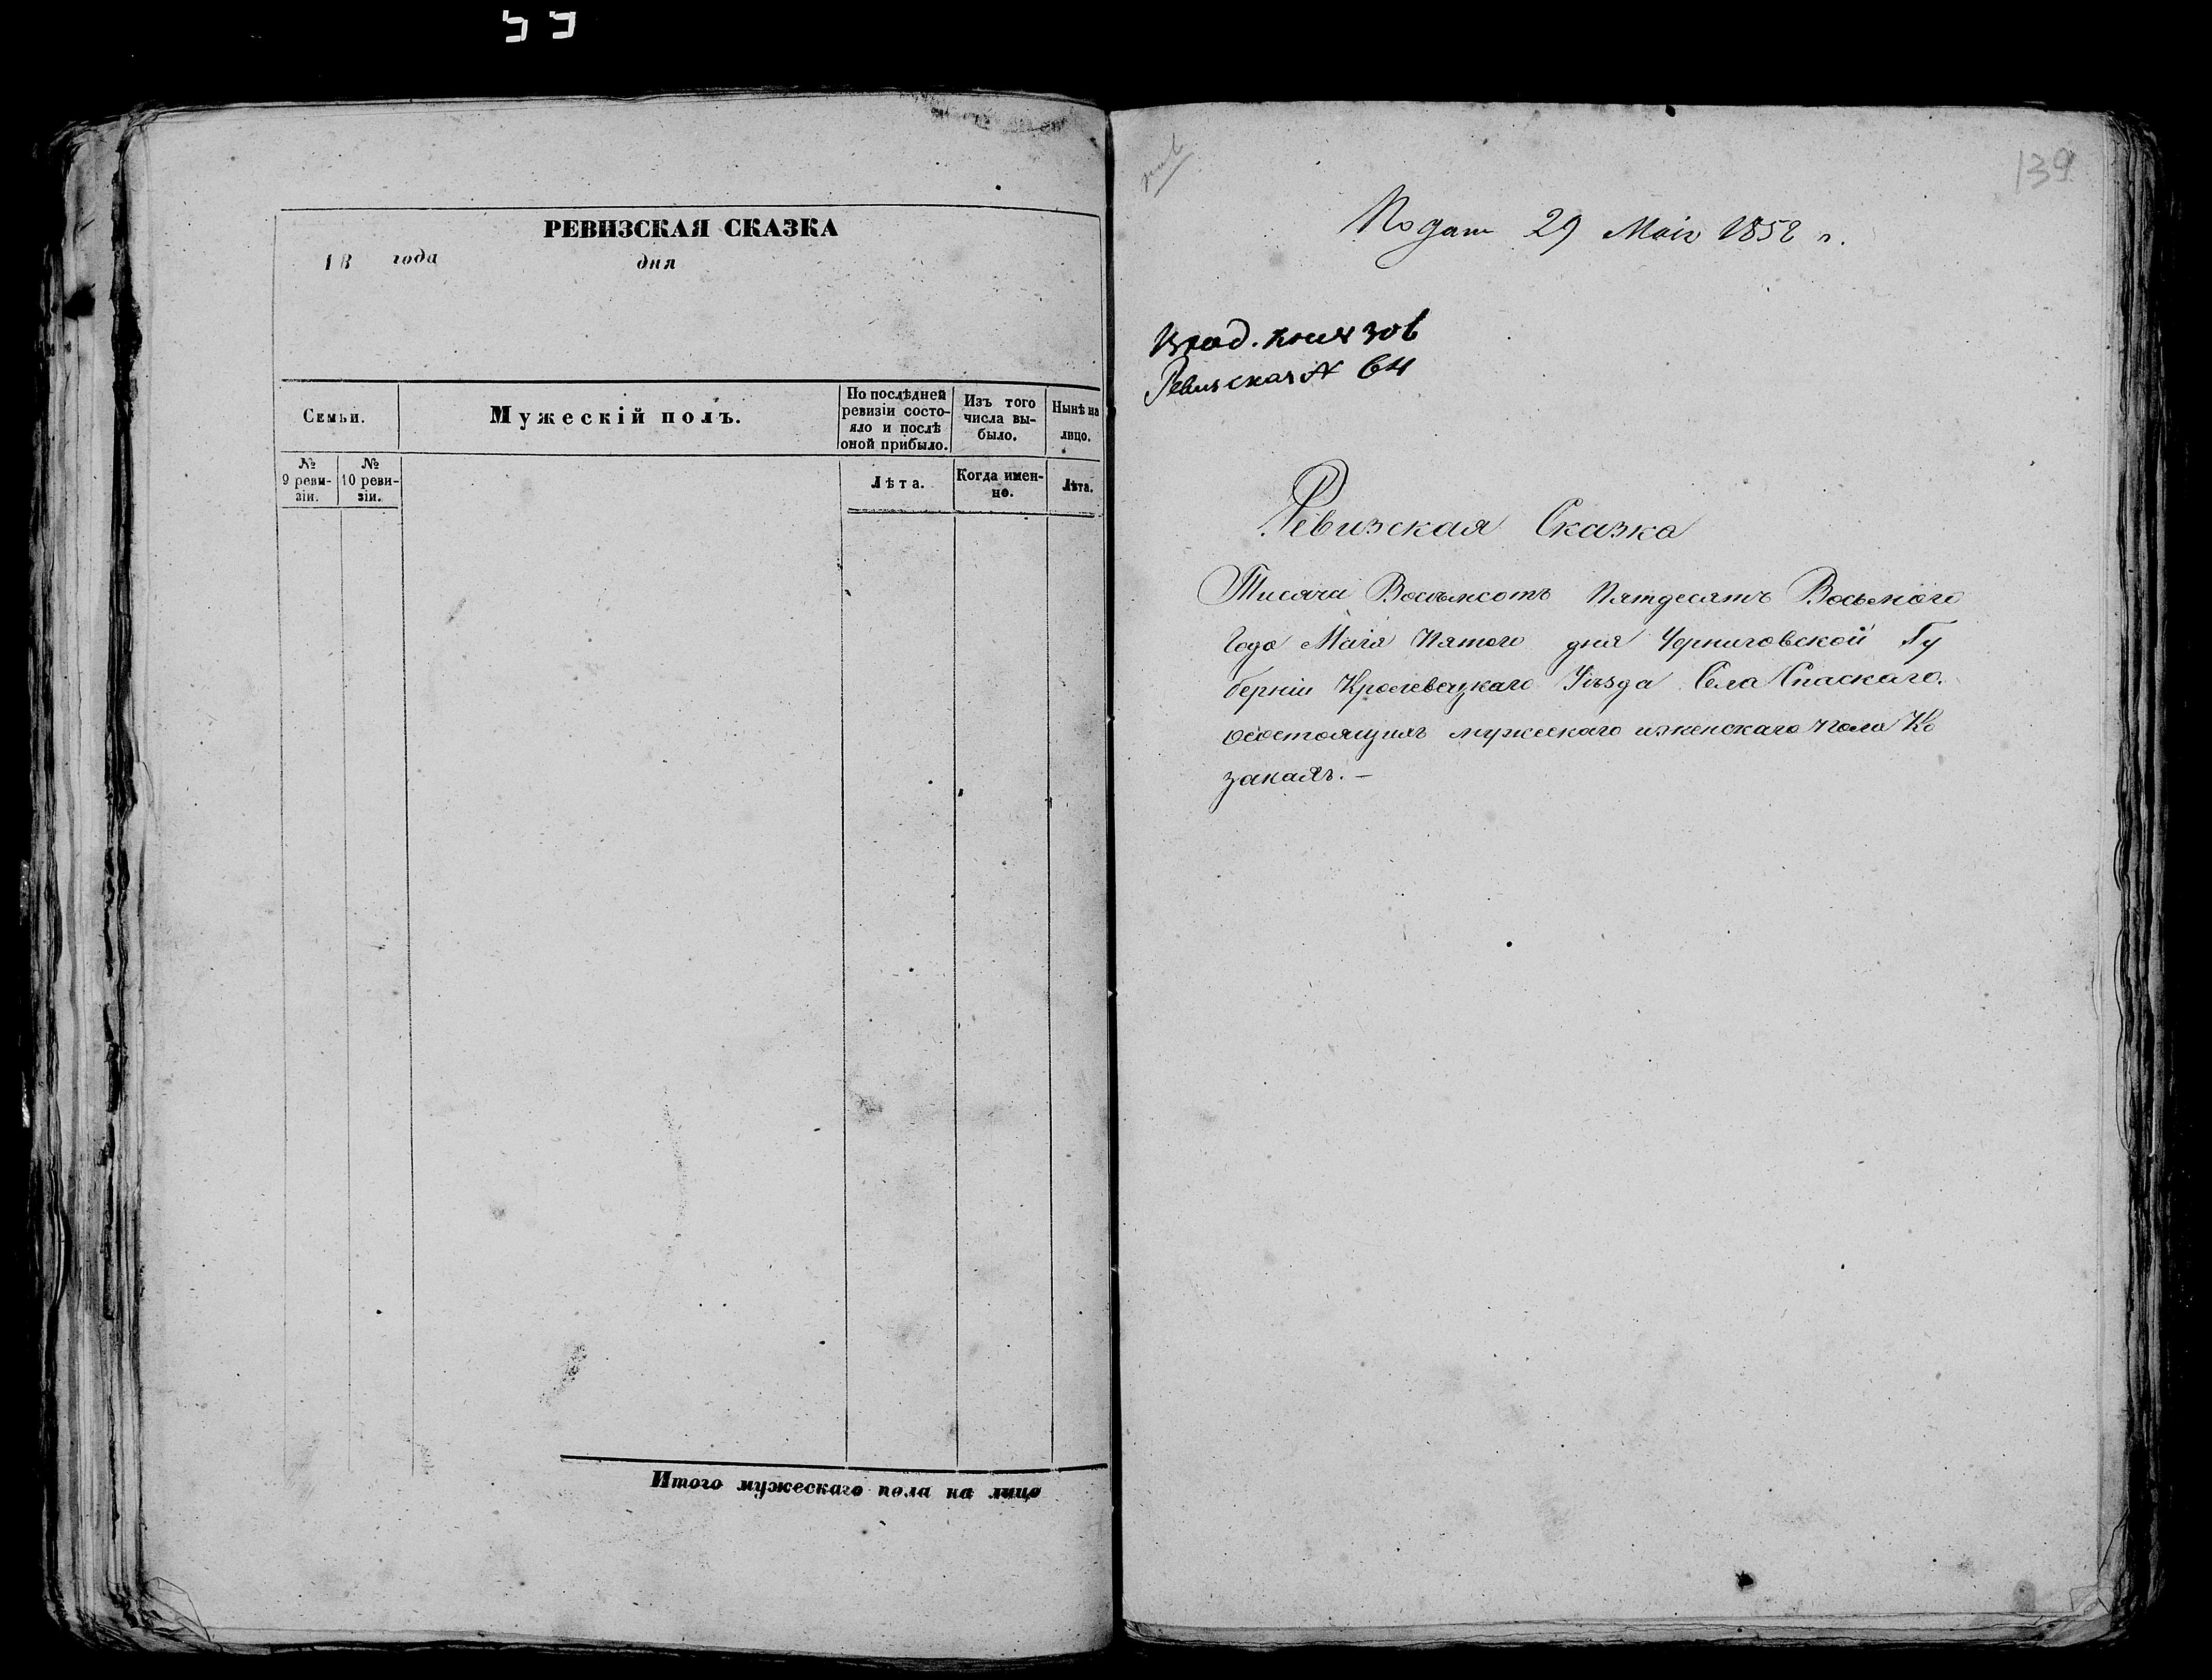 РЕВИЗСКАЯ СКАЗКА
18 года дня
Семьи.
Мужескій полъ.
По послѣдней
ревизіи состо-
яло и послѣ
оной прибыло.
Изъ того
числа вы-
было.
Нынѣ на
лицо.
№
9 реви-
зіи.
№
10 реви-
зіи.
Лѣта.
Когда имен-
но.
Лѣта.
Итого мужескаго пола на лицо
139
Подан 29 Маія 1858 г.
Ревизская № 64
Ревизская Сказка
Тисяча Восъмсотъ Пятдесятъ Восьмого
Года Маія Пятого дня Черниговской Гу
берніи Кролевецкаго Уѣзда Села Спаскаго.
осостоящихъ мужескаго иженскаго пола Ко
закахъ. –